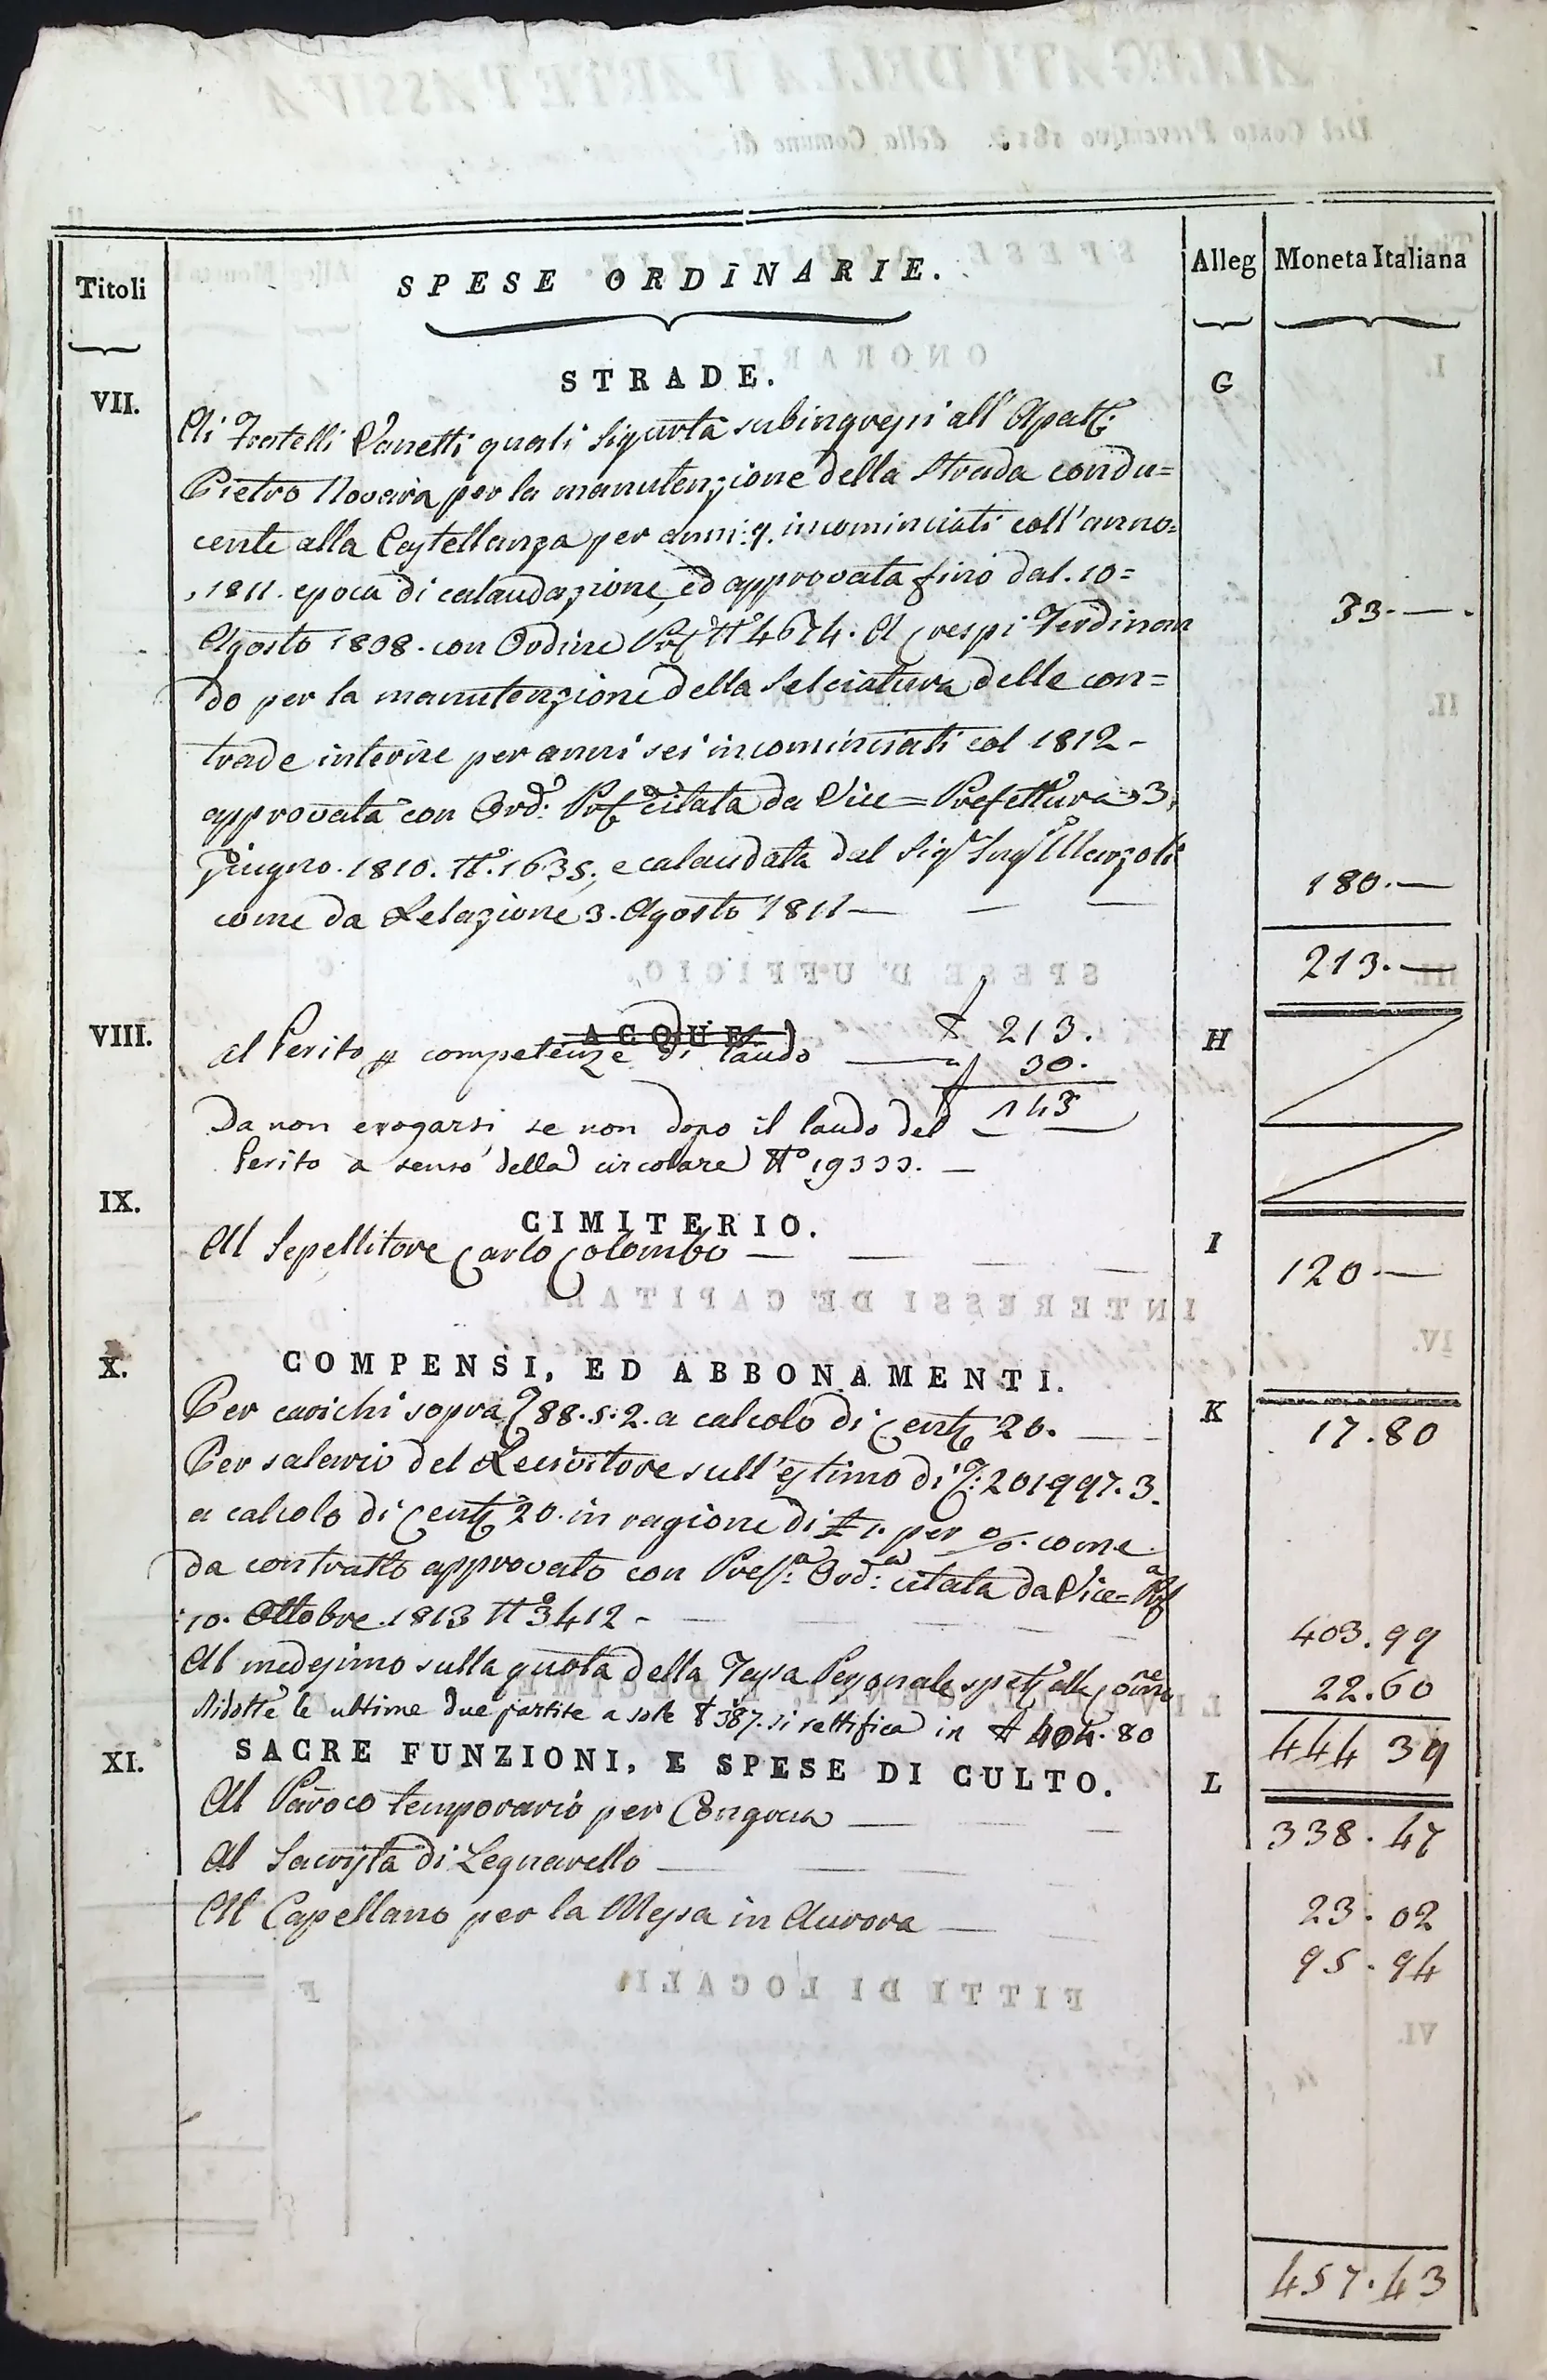 Titoli
SPESE ORDINARIE.
Alleg
Moneta Italiana
VII.
STRADE.
G
Ai Fratelli Vanetti quali Sigurtà subingressi all' Apalt:
Pietro Novara per la manutenzione della Strada condu=
cente alla Castellanza per anni: 9. incominciati coll'anno=
1811. epoca di calaudazione, ed approvata fino dal. 10=
33.—.
Agosto 1808. con Ordine N.° 4674. A Crespi Ferdinan
do per la manutenzione della Selciatura delle con=
trade interne per anni sei incominciati col 1812-
approvata con Ord: citata da Vice=Prefettura 3.
Giugno. 1810. N.° 1635., e calaudata dal Sig.r Ing.e Marzoli
come da Relazione 3. Agosto 1811 — — —
180.—
213.—
VIII.
ACQUE
H
al Perito competenze di laudo
213.
30.
143
Da non erogarsi, se non dopo il laudo del
Perito a senso della circolare N.° 19333. —
IX.
CIMITERIO.
I
Al Sepellitore Carlo Colombo — — — —
120.—
X.
COMPENSI, ED ABBONAMENTI.
K
Per carichi sopra 88.5.2. a calcolo di Cent. 20.
17.80
Per salario del Ricevitore sull'estimo di 201997.3.
a calcolo di Cent. 20. in ragione di £ 1. per %. come
da contratto approvato con Pref:a Ord:a citata da Vice=Pref.a
10. Ottobre. 1813 N.° 3412 -
403.99
Al medesimo sulla quota della Tassa Personale spett. alla Comune
22.60
Ridotte le ultime due partite a sole £ 387. si rettifica in £ 404.80
444 39
XI.
SACRE FUNZIONI, E SPESE DI CULTO.
L
Al Paroco temporario per Congrua
338.47
Al Sacrista di Legnarello
23.02
Al Capellano per la Messa in Aurora
95.94
457.43